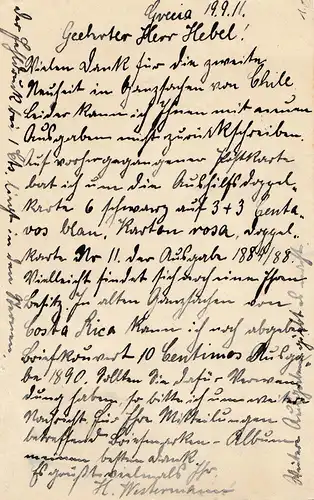 Grecia 19.9.11.
Geehrter Herr Hebel!
Vielen Dank für die zweite
Neuheit in Ganzsachen von Chile
Leider kann ich Ihnen mit neuen
Ausgaben nicht zurückschreiben.
Auf vorhergegangener Postkarte
bat ich um die Aushilfsdoppel-
karte 6 schwarz auf 3+3 Centa-
vos blau, Karton rosa, Doppel-
karte Nr 11. der Ausgabe 1884/88.
Vielleicht findet sich noch eine in Ihrem
Besitz. In alten Ganzsachen von
Costa Rica kann ich noch abgeben
Briefkouvert 10 Centimos Ausga-
be 1890. Sollten Sie dafür Verwen-
dung haben, so bitte ich um weitere
Nachricht. Für Ihre Mitteilungen
betreffend Briefmarken-Album
meinen besten Dank
Es grüßt vielmals Ihr
H. Westermann
Weitere Ausgaben